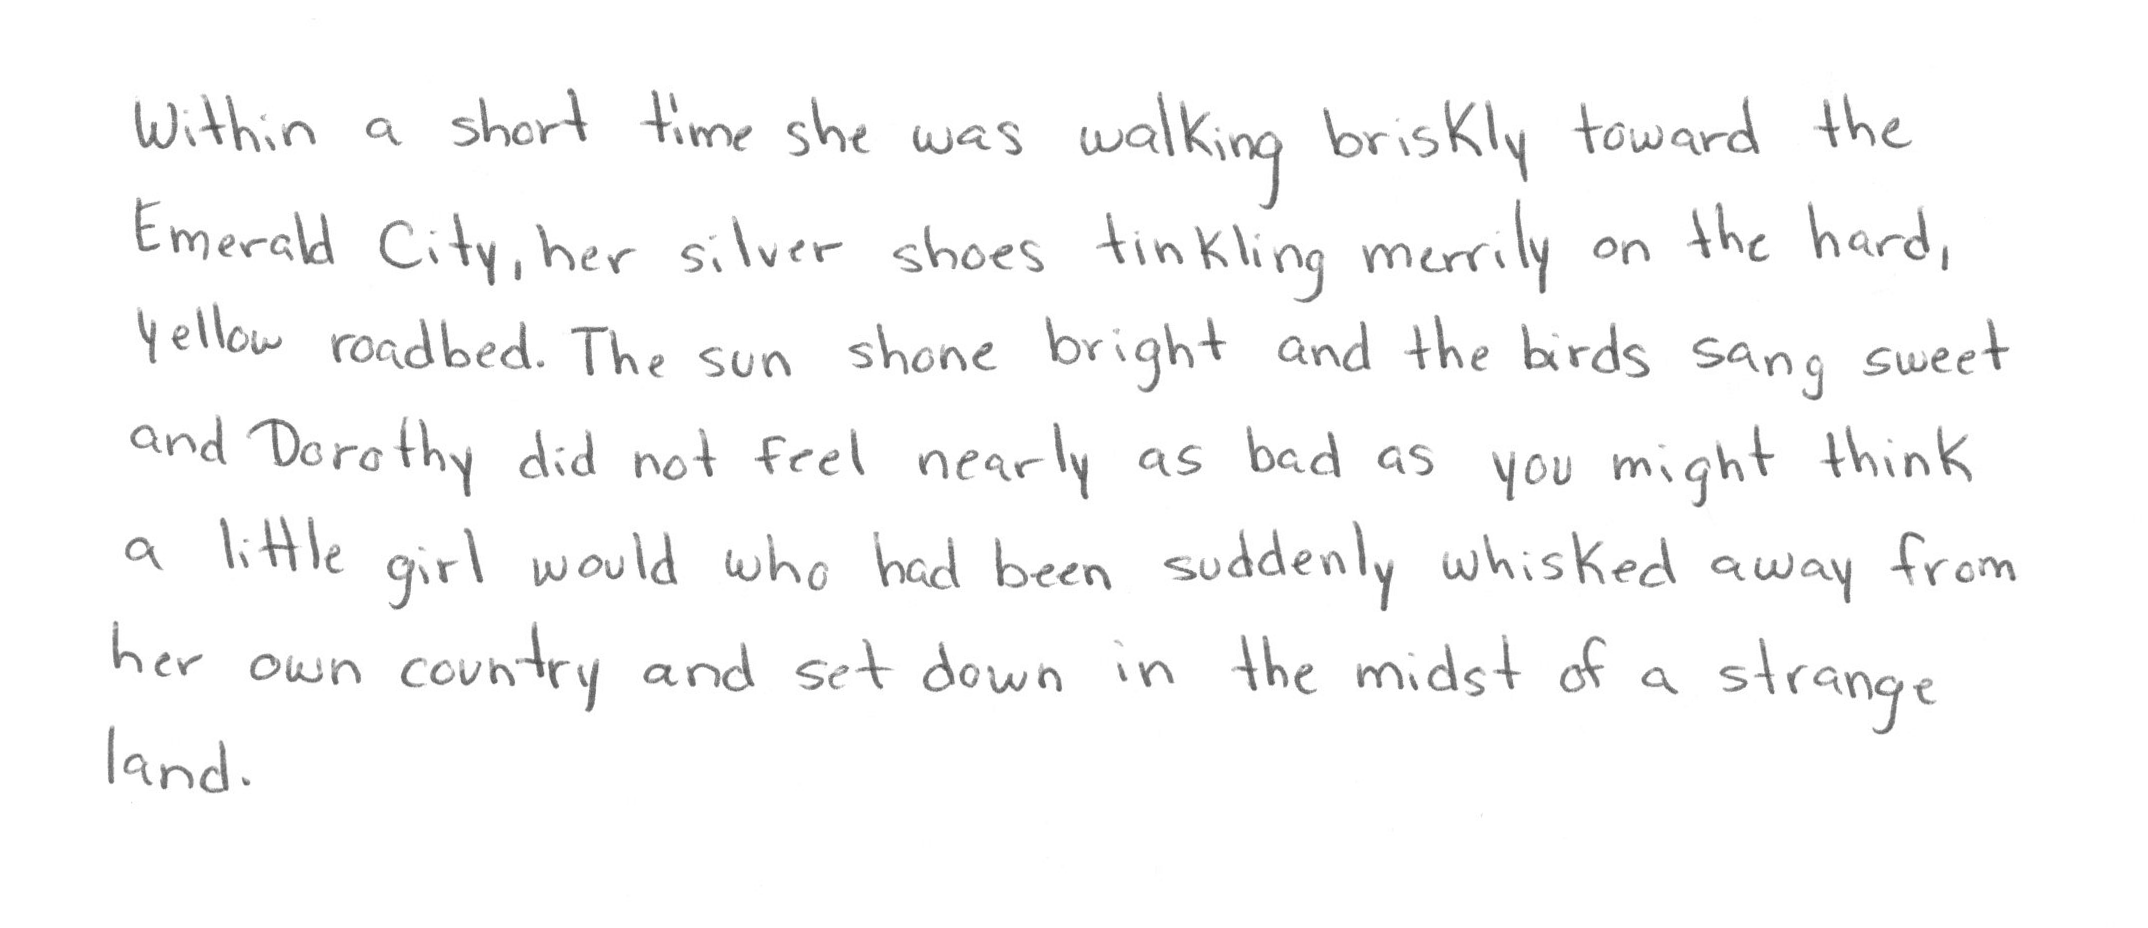 Within a short time she was walking briskly toward the
Emerald City, her silver shoes tinkling merrily on the hard,
yellow roadbed. The sun shone bright and the birds sang sweet
and Dorothy did not feel nearly as bad as you might think
a little girl would who had been suddenly whisked away from
her own country and set down in the midst of a strange
land.